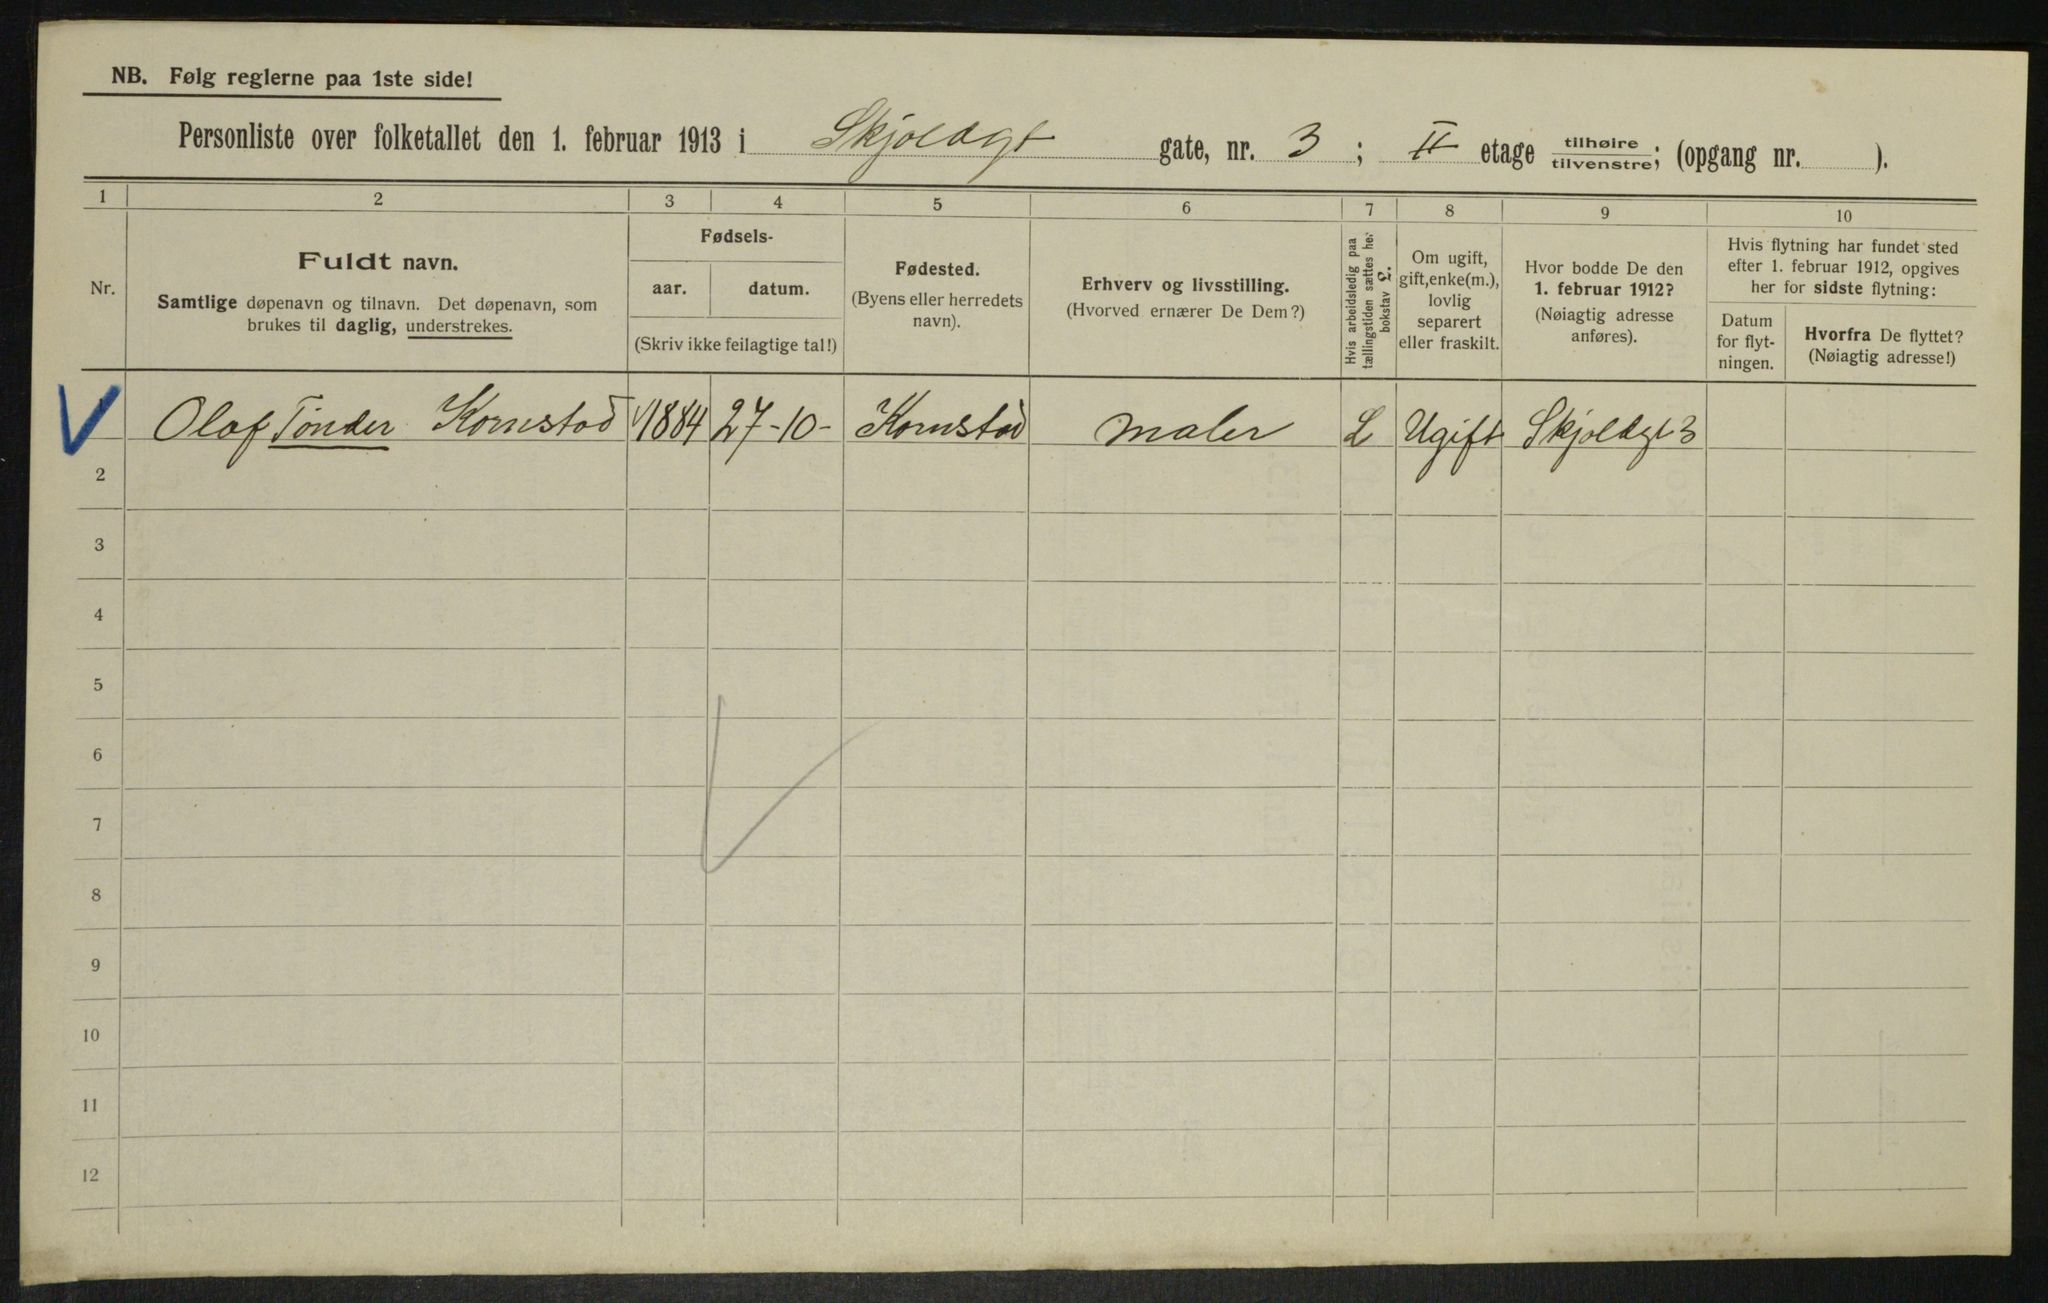 NB. Følg reglerne paa 1ste side!
Personliste over folketallet den 1. februar 1913 i Skjoldgt gate, nr. 3 ; II etage tilhøire tilvenstre; (opgang nr. ).
1 2 3 4 5 6 7 8 9 10
Nr.
Fuldt navn.
Samtlige døpenavn og tilnavn. Det døpenavn, som
brukes til daglig, understrekes.
Fødsels-
aar. datum.
(Skriv ikke feilagtige tal!)
Fødested.
(Byens eller herredets
navn).
Erhverv og livsstilling.
(Hvorved ernærer De Dem?)
Hvis arbeidsledig paa
tællingstiden sættes her
bokstav L.
Om ugift,
gift, enke(m.),
lovlig
separert
eller fraskilt.
Hvor bodde De den
1. februar 1912?
(Nøiagtig adresse
anføres).
Hvis flytning har fundet sted
efter 1. februar 1912, opgives
her for sidste flytning:
Datum
for flyt-
ningen.
Hvorfra De flyttet?
(Nøiagtig adresse!)
Olaf Tønder Kornstad 1884 27-10- Kornstad Maler L Ugift Skjoldgt 3
2
3
4
5
6
7
8
9
10
11
12